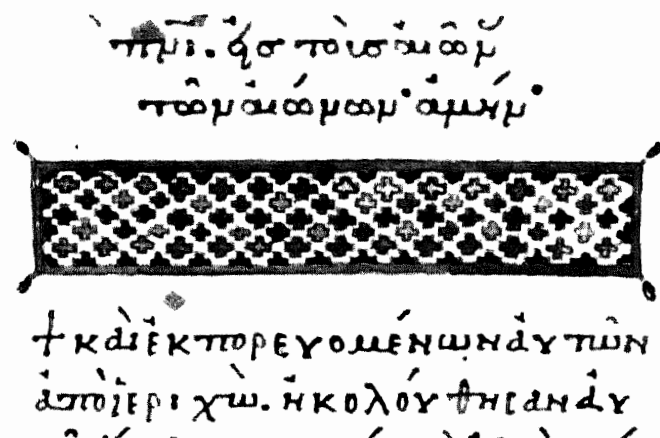 πνι. εἰσ τοὺσ αἰῶν
τῶν αἰώνων· ἀμήν·
+ καὶ ἐκπορευομένων αὐτῶν
ἀπὸ ἱεριχὼ. ἠκολούθησαν αὐ